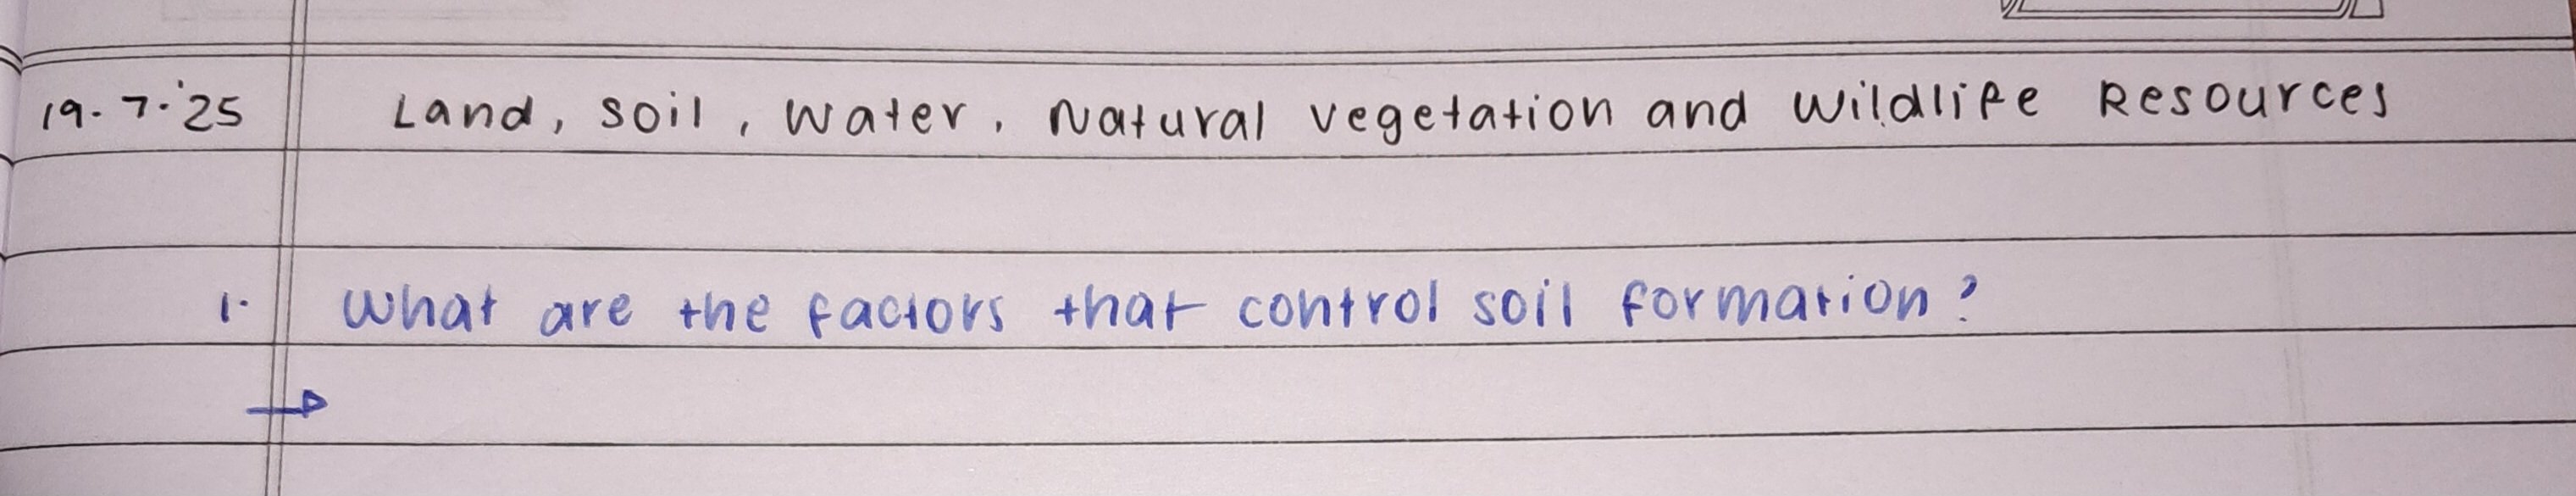 19.7.'25 Land, soil, water, Natural vegetation and wildlife Resources
1. What are the factors that control soil formation?
→